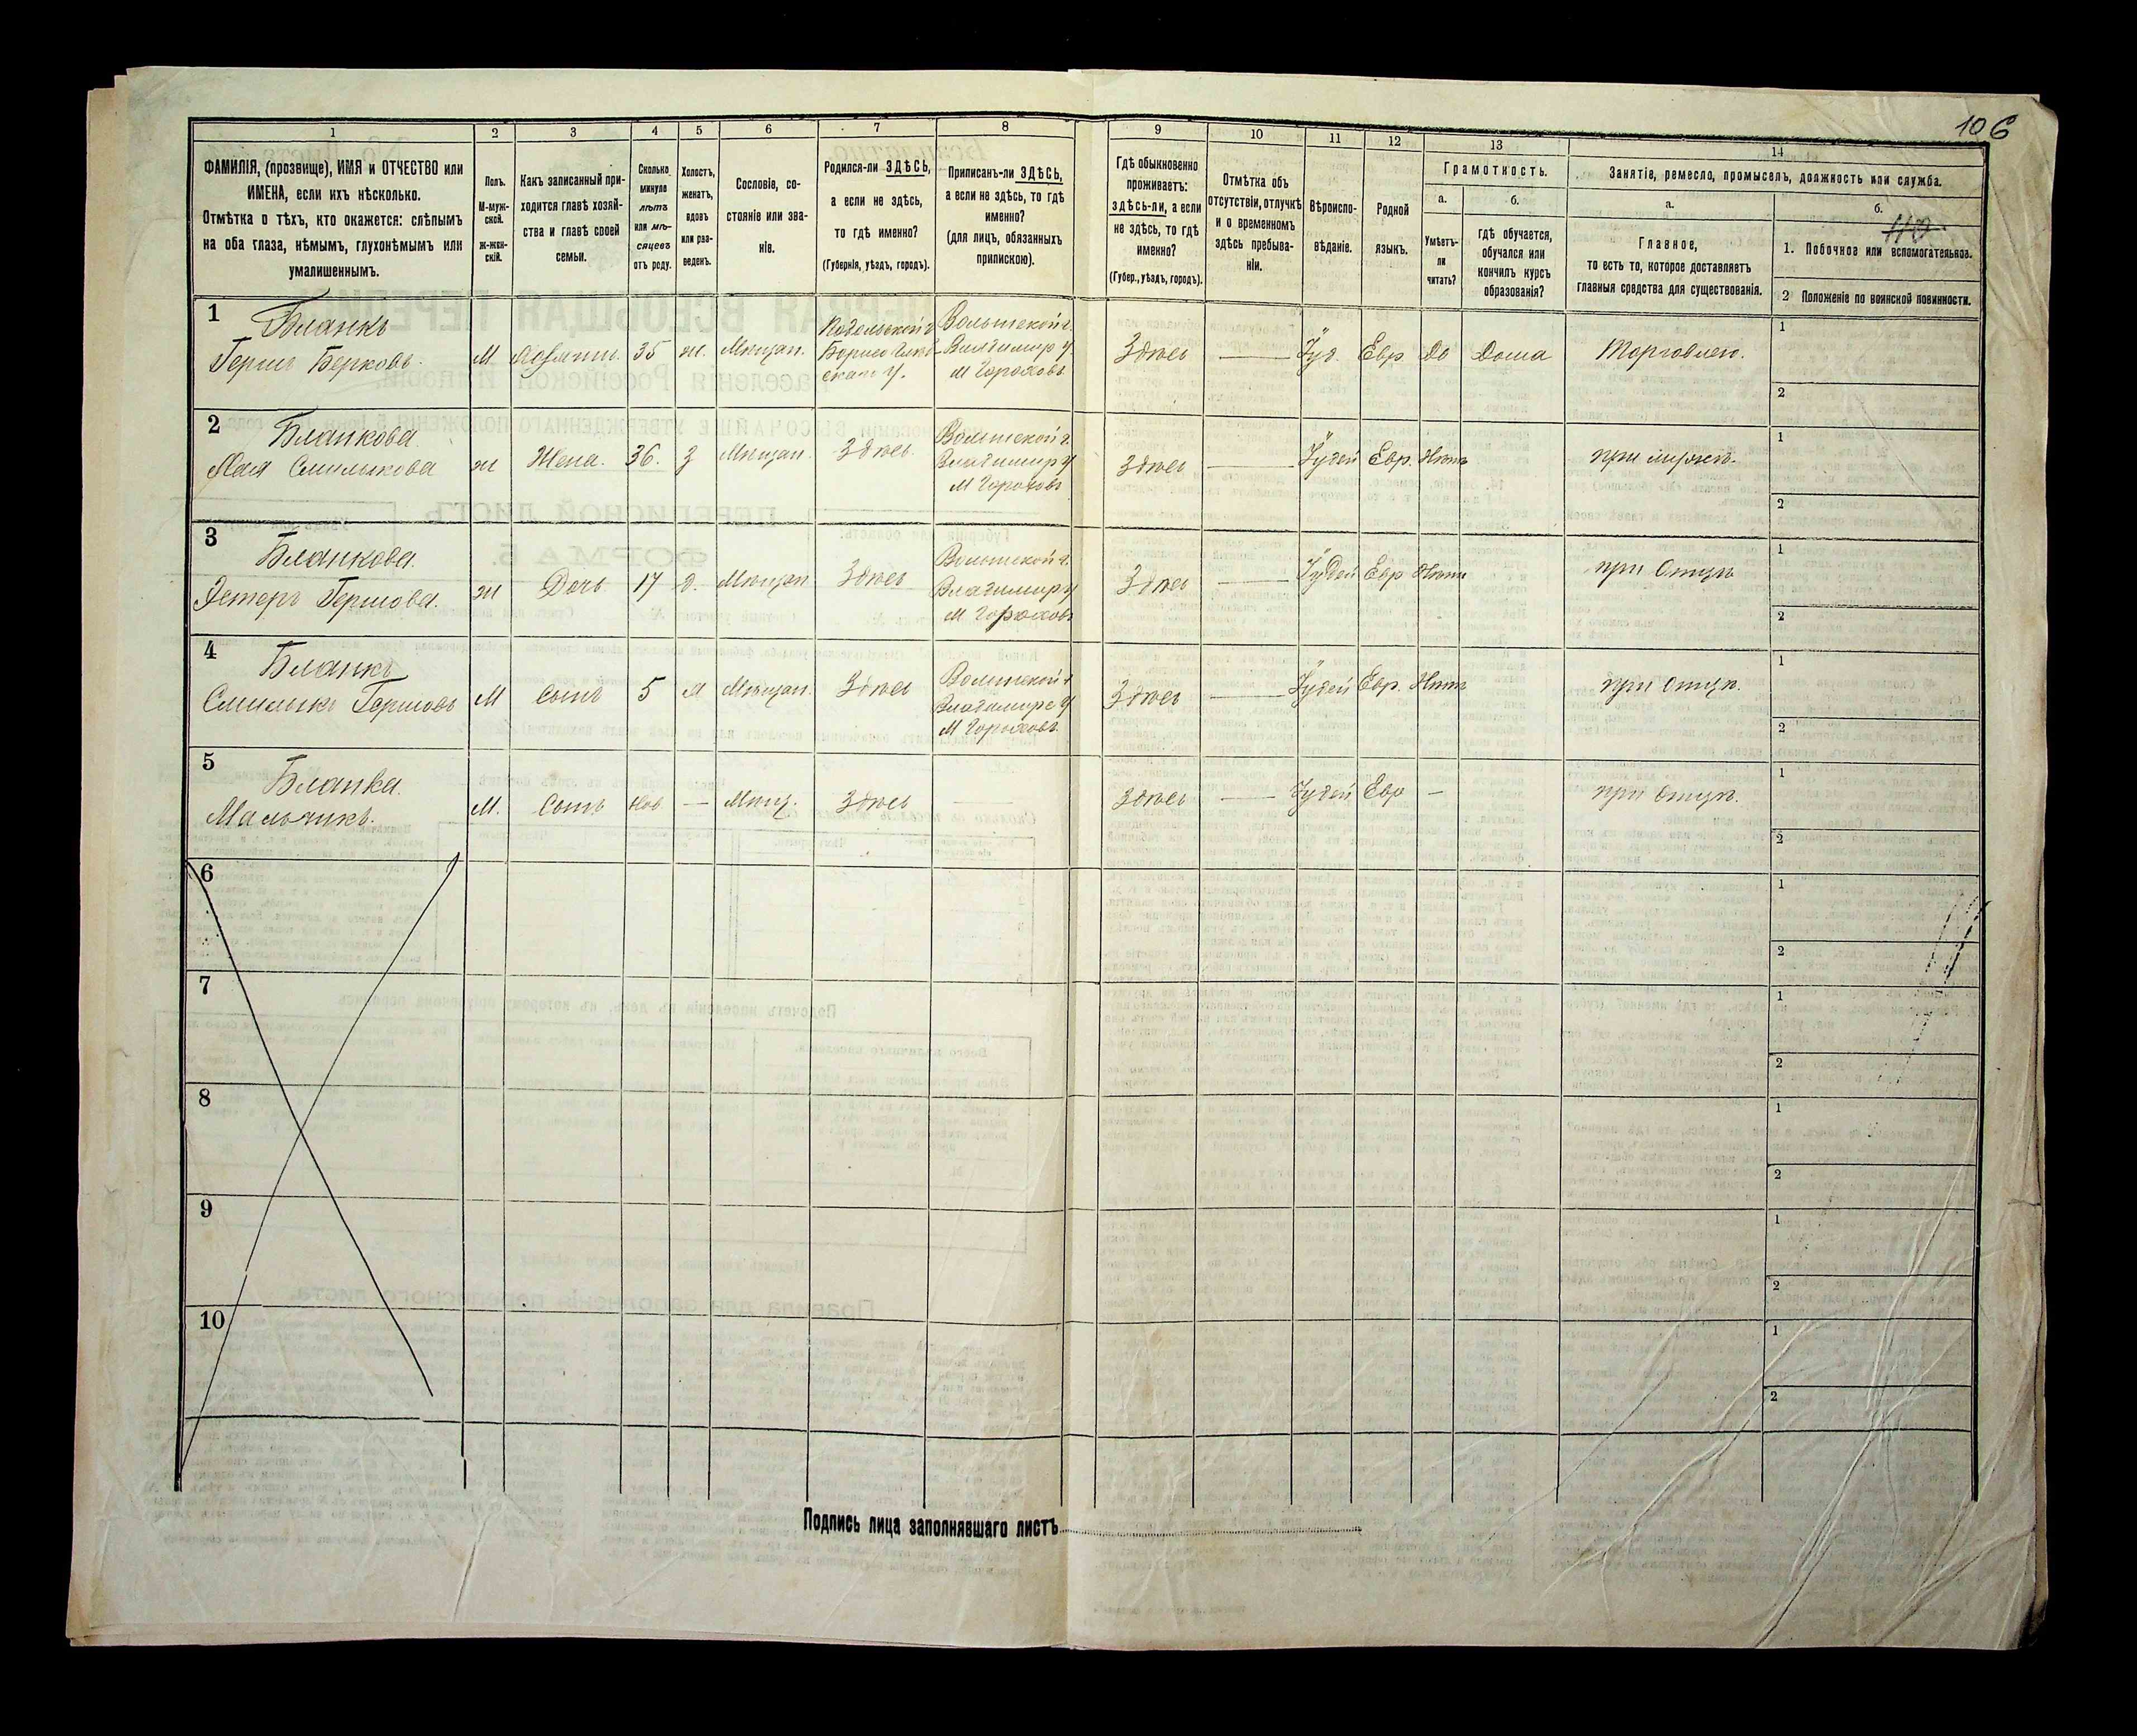 106
110
1 2 3 4 5 6 7 8 9 10 11 12 13 14
ФАМИЛІЯ, (прозвище), ИМЯ и ОТЧЕСТВО или
ИМЕНА, если ихъ нѣсколько.
Отмѣтка о тѣхъ, кто окажется: слѣпымъ
на оба глаза, нѣмымъ, глухонѣмымъ или
умалишеннымъ.
Полъ.
М-муж-
ской.
Ж-жен-
скій.
Какъ записанный при-
ходится главѣ хозяй-
ства и главѣ своей
семьи.
Сколько
минуло
лѣтъ
или мѣ-
сяцевъ
отъ роду.
Холостъ,
женатъ,
вдовъ
или раз-
веденъ.
Сословіе, со-
стояніе или зва-
ніе.
Родился-ли ЗДѢСЬ,
а если не здѣсь,
то гдѣ именно?
(Губернія, уѣздъ, городъ).
Приписанъ-ли ЗДѢСЬ,
а если не здѣсь, то гдѣ
именно?
(для лицъ, обязанныхъ
припискою).
Гдѣ обыкновенно
проживаетъ:
здѣсь-ли, а если
не здѣсь, то гдѣ
именно?
(Губер., уѣздъ, городъ).
Отмѣтка объ
отсутствіи, отлучкѣ
и о временномъ
здѣсь пребыва-
ніи.
Вѣроиспо-
вѣданіе.
Родной
языкъ.
Грамотность.
а.
Умѣетъ-
ли
читать?
б.
гдѣ обучается,
обучался или
кончилъ курсъ
образованія?
Занятіе, ремесло, промыселъ, должность или служба.
а.
Главное,
то есть то, которое доставляетъ
главныя средства для существованія.
б.
1. Побочное или вспомогательное.
2 Положеніе по воинской повинности.
1
Бланкъ
Гершъ Берковъ.
М
35
ж.
Мѣщан.
Подольской г
Волынской г.
Владимир у.
М Гороховъ
Здѣсь
Іуд.
Евр
Да
Дома
Торговлею.
1
2
2
Бланкова
Смилыкова
ж
Жена.
36.
З
Мѣщан.
Здѣсь.
Волынской г.
Владимир у
М Гороховъ
Здѣсь
Іудей
Евр.
Нѣтъ
при мужѣ.
1
2
3
Бланкова.
Эстеръ Гершова.
ж
Дочь
17
д.
Мѣщан
Здѣсь
Волынской г.
Владимир у
М Гороховъ
Здѣсь
Іудей
Евр
Нѣтъ
при Отцѣ
1
2
4
Бланкъ
Смилыкъ Гершовъ
М
Сынъ
5
Мѣщан.
Здѣсь
Волынской г
Владимире у
М Гороховъ.
Здѣсь
Іудей
Евр.
Нѣтъ
при Отцѣ.
1
2
5
Бланка.
Мальчикъ.
М.
Сынъ
—
Мѣщ.
Здѣсь
Здѣсь
Іудей
Евр
—
при Отцѣ.
1
2
6
1
2
7
1
2
8
1
2
9
1
2
10
1
2
Подпись лица заполнявшаго листъ